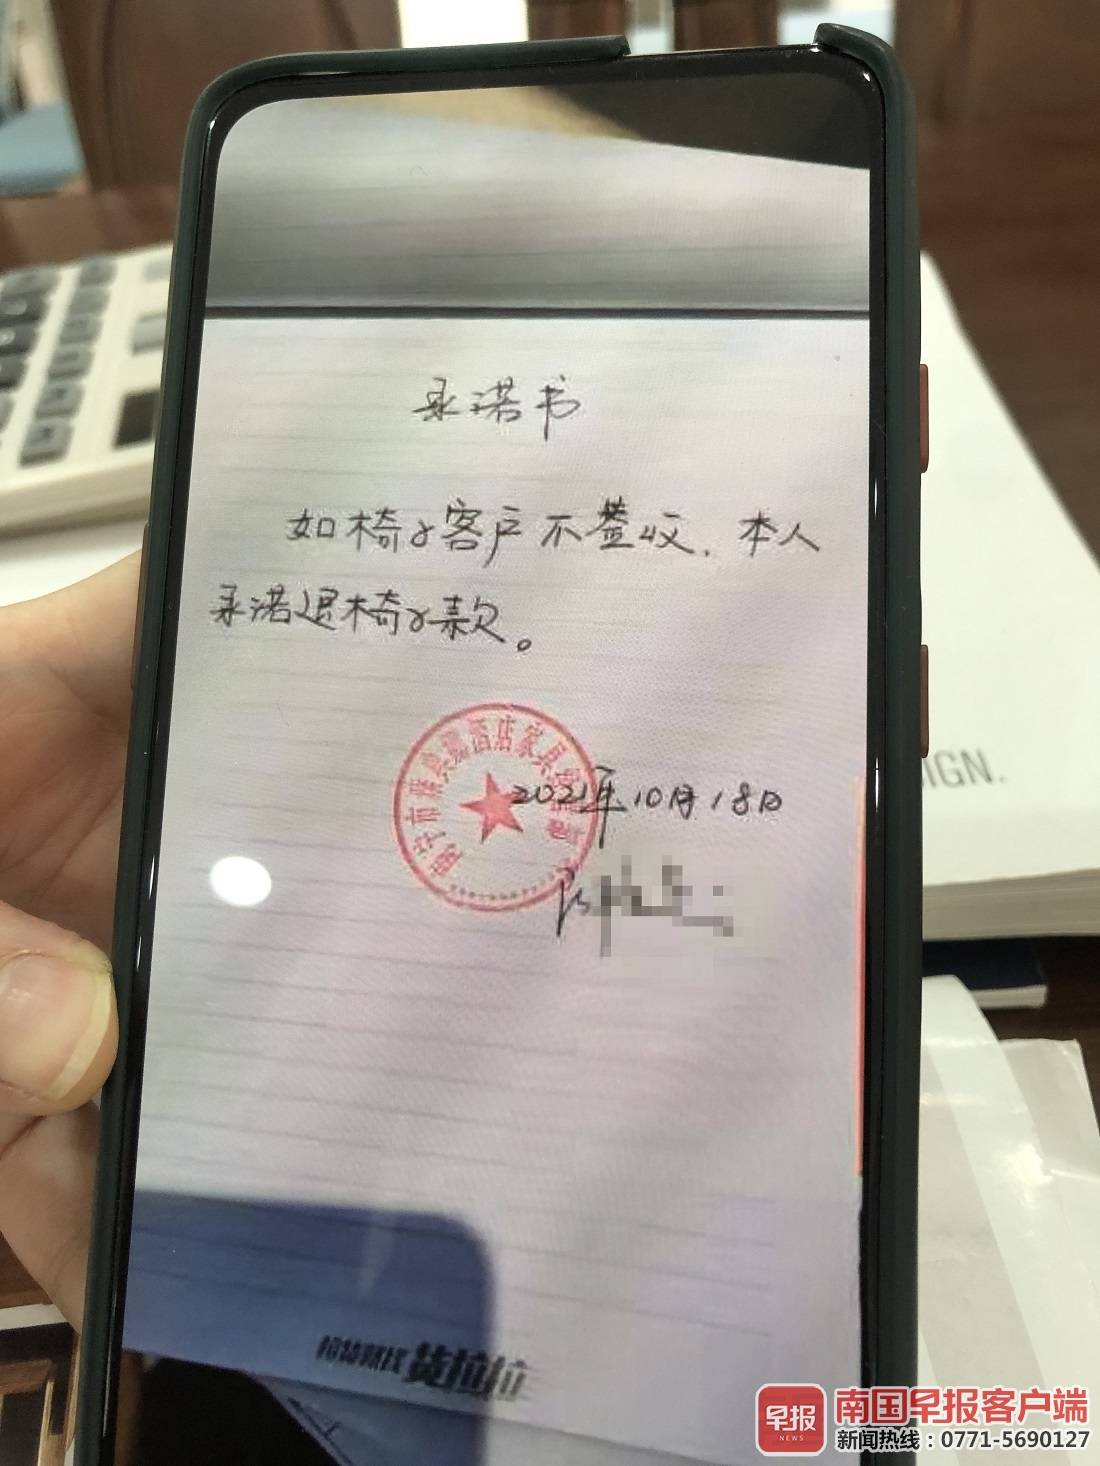 承诺书
如椅子客户不签收，本人
承诺退椅子款。
2021年10月18日
货拉拉
IGN.
早报
NEWS
南国早报客户端
新闻热线：0771-5690127